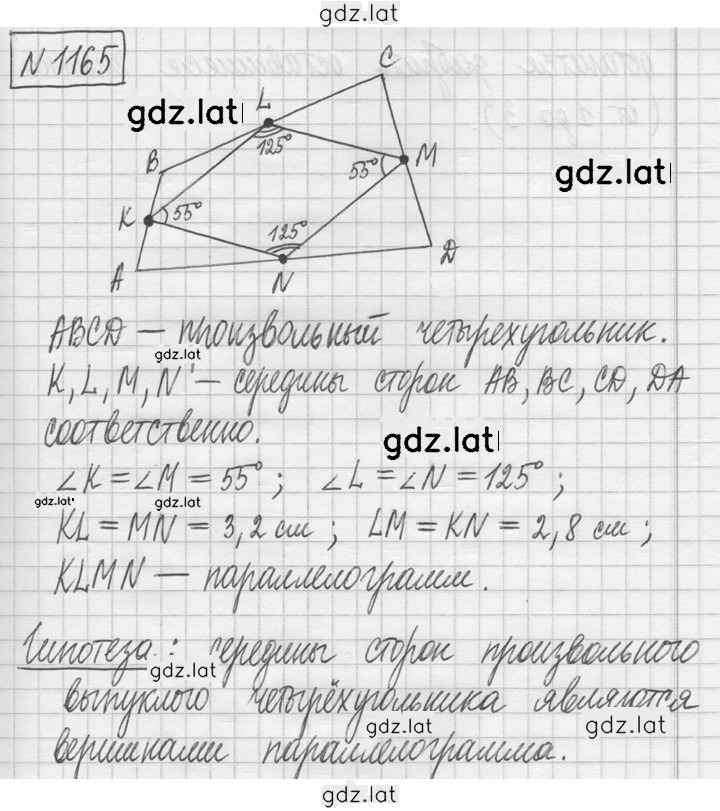 gdz.lat
N 1165
C
L
gdz.lat
125°
B
55°
M
gdz.lat
K
55°
125°
D
A
N
ABCD — произвольный четырехугольник.
gdz.lat
K, L, M, N — середины сторон AB, BC, CD, DA
соответственно.
gdz.lat
∠K = ∠M = 55°; ∠L = ∠N = 125°;
gdz.lat
gdz.lat
KL = MN = 3,2 см; LM = KN = 2,8 см;
KLMN — параллелограмм.
Гипотеза: середины сторон произвольного
gdz.lat
выпуклого четырёхугольника являются
gdz.lat
gdz.lat
вершинами параллелограмма.
gdz.lat